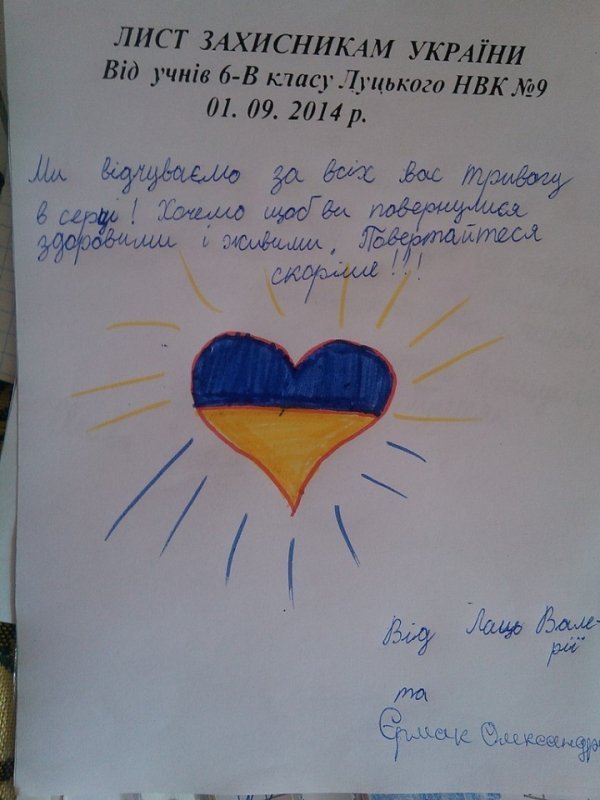 ЛИСТ ЗАХИСНИКАМ УКРАЇНИ
Від учнів 6-В класу Луцького НВК №9
01. 09. 2014 р.
Ми відчуваємо за всіх вас тривогу
в серці! Хочемо щоб ви повернулися
здоровими і живими. Повертайтеся
скоріше!!!
Від Лащо Вале-
рії
та
Єрмак Олександри